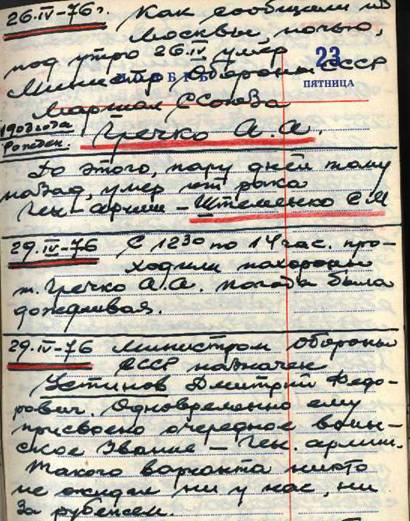 26.IV-76г. Как сообщили из
Москвы, ночью,
под утро 26.IV умер
23
Министр Обороны СССР
ПЯТНИЦА
Маршал С Союза
1903 года
Рожден.
Гречко А. А.
До этого, пару дней тому
назад, умер от рака
Ген-армии - Штеменко С М
29.IV-76 С 12 30 по 14 час. про-
ходили похороны
т. Гречко А.А. погода была
дождливая.
29.IV-76 Министром обороны
СССР назначен
Устинов Дмитрий Федо-
рович. Одновременно ему
присвоено очередное воин-
ское звание - Ген. армии.
Такого варианта никто
не ожидал ни у нас, ни
за рубежем.